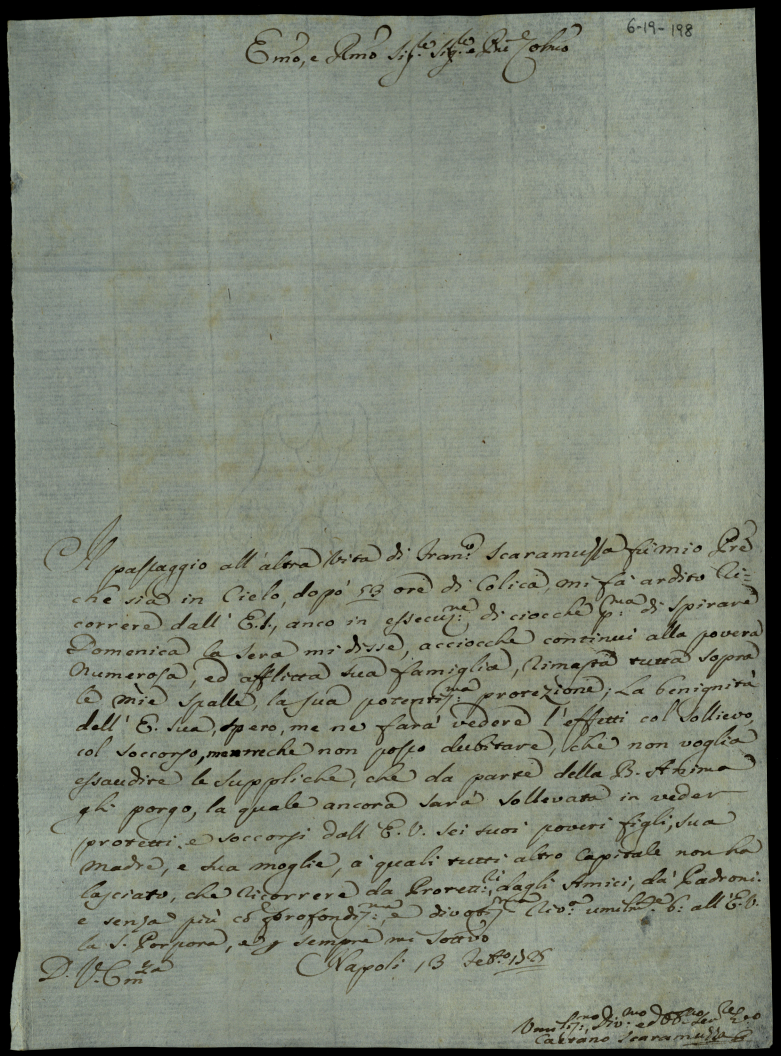 6-19-198
Emo, e Rmo Sig.re Sig.re e Pne Colmo
Il passaggio all'altra Vita di Fran.o Scaramussa fù mio Pre
che sia in Cielo, dopò 53 ore di Colica, mi fà ardito Ri=
correre dall'E.S., anco in essecuz.ne, di ciocche p.ma di Spirare
Domenica la Sera mi disse, acciocche continui alla povera
Numerosa, ed afflitta sua famiglia, Rimasta tutta sopra
le mie Spalle, la sua potentis.ma protezione; La benignità
dell'E. Sua, Spero, me ne farà vedere l'effetti col Sollievo,
col Soccorso, mentreche non posso dubitare, che non voglia
essaudire le Suppliche, che da parte della B. Anima
gli porgo, la quale ancora sarà sollevata in veder
protetti, e Soccorsi dall'E.V. Sei suoi poveri figli, sua
madre, e sua moglie, a' quali tutti altro Capitale non ha
lasciato, che Ricorrere da Protett.ri, dagli Amici, da' Padroni.
e senza più cō profondis.ma, e divotis.ma Riv.a umilm.te b. all'E.V.
la S. Porpora, e p sempre mi Sottvo
D. V. Em.za Napoli 13 Feb.o
Umilis.mo Div.mo ed Obb.mo Ser.re
Gaetano Scaramussa